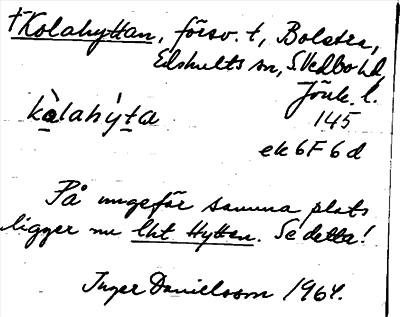 †Kolahyttan, försv. t, Bolstra,
Edshults sn, S. Vedbo hd,
Jönk. l.
145
kàlahýta
ek 6F 6d
På ungefär samma plats
ligger nu lht Hyttan. Se detta!
Inger Danielsson 1964.